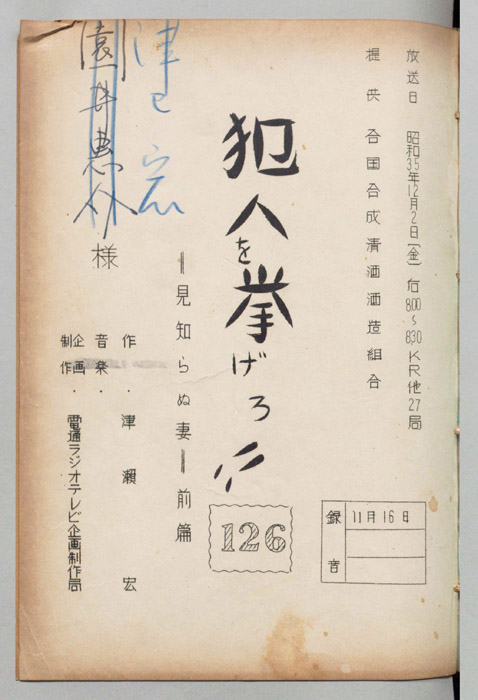 放送日 昭和35年12月2日(金)后8.00〜8.30 KR他27局
提供 合国合成清酒酒造組合
犯人を挙げろ!!
126
録音 11月16日
=見知らぬ妻=前篇
作・津瀬 宏
音楽・
企画制作・電通ラジオテレビ企画制作局
様